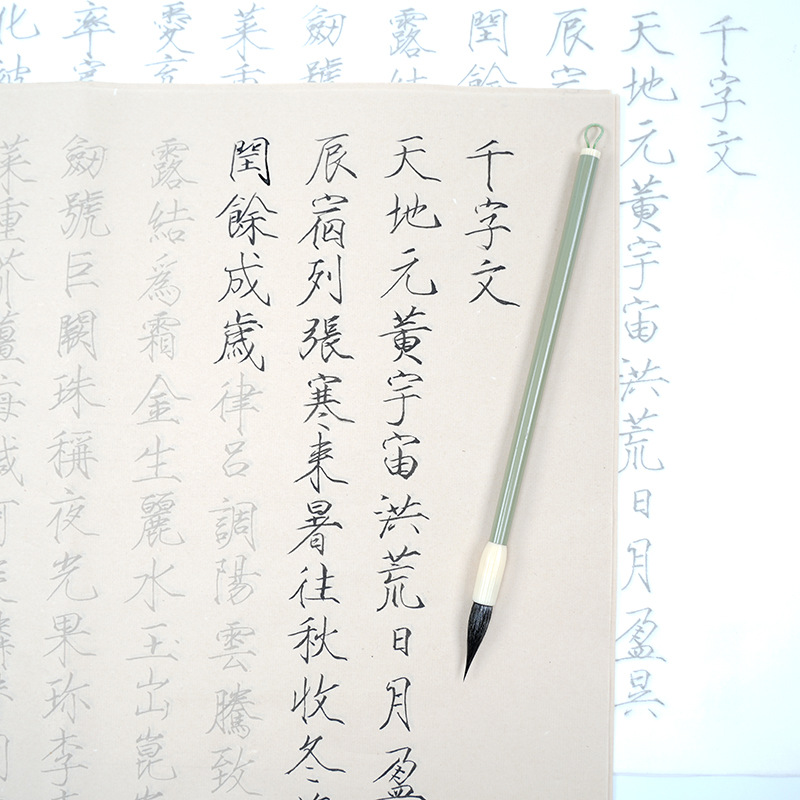 千字文
天地元黃宇宙洪荒日月盈
辰宿列張寒来暑往秋收冬
閏餘成歲律呂調陽雲騰致
露結爲霜金生麗水玉出崑
劒號巨闕珠稱夜光果珍李
菜重芥薑海鹹河
千字文
天地元黃宇宙洪荒日月盈昃
辰宿
閏餘
露結
劒號
菜重
愛育
率賓
化被